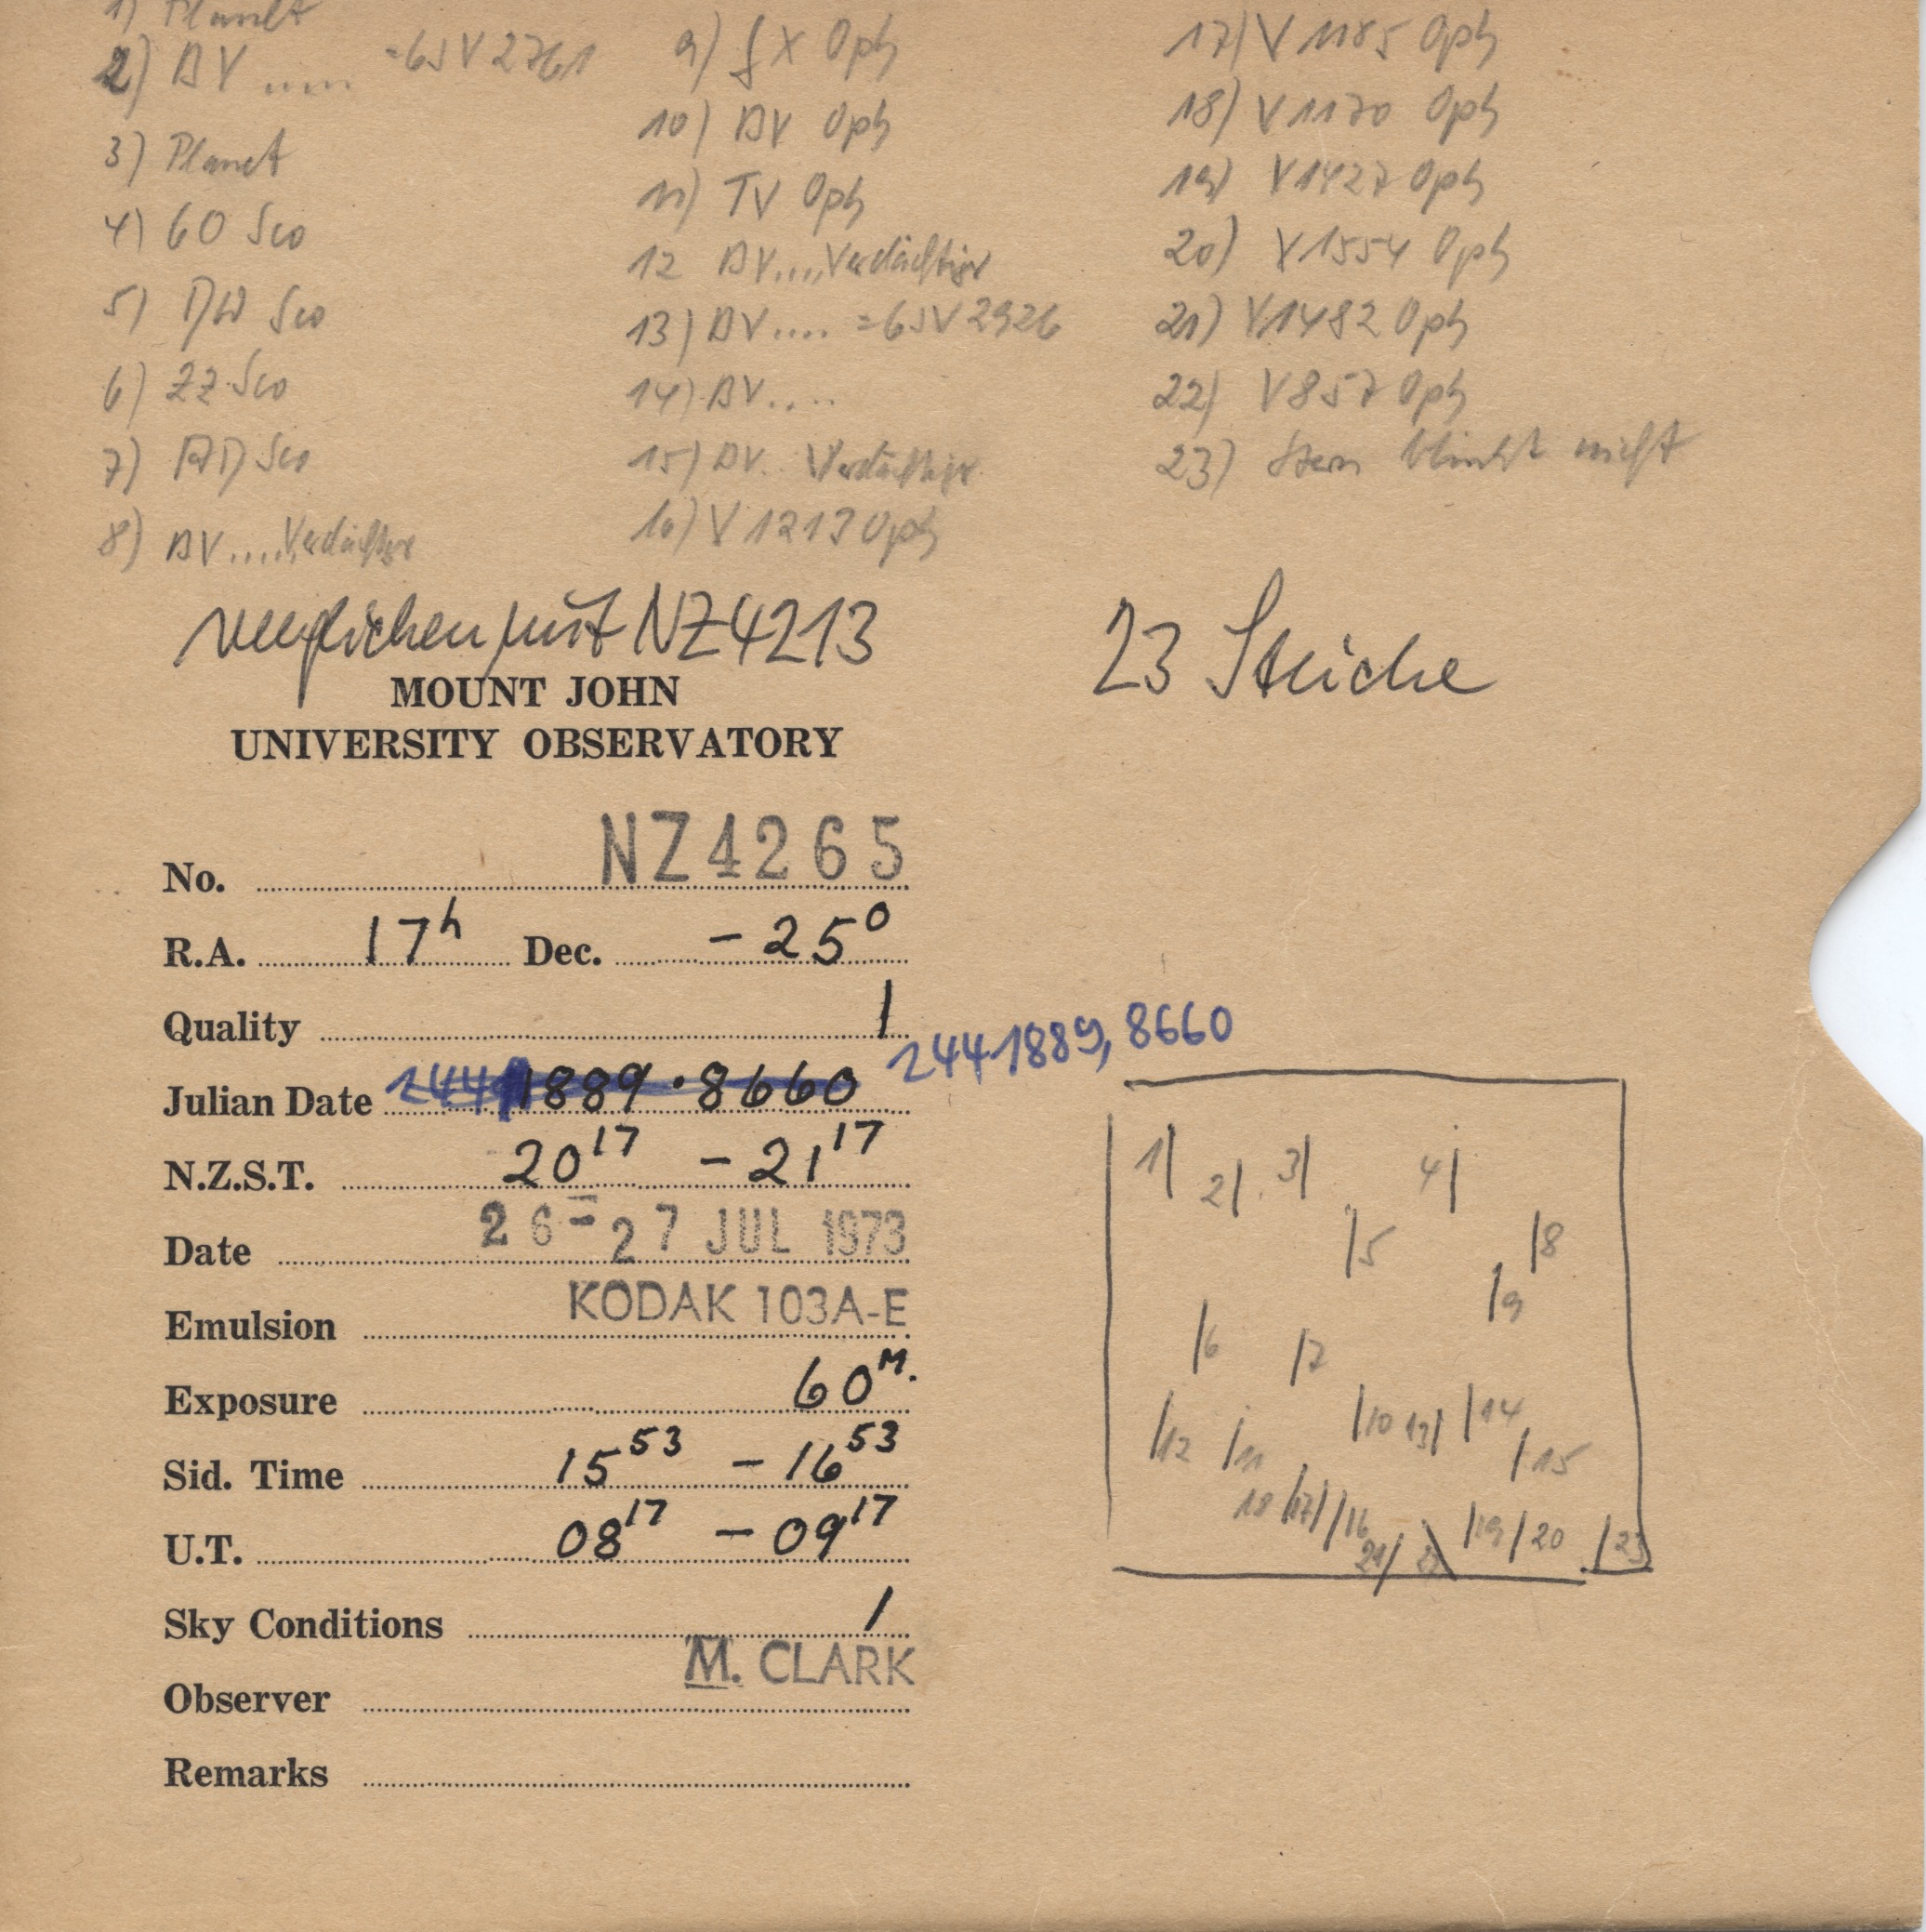 1) Planet
2) BV ..... =CSV 2761
3) Planet
4) GO Sco
5) DW Sco
6) ZZ Sco
7) AD Sco
8) BV .... Verdächtiger
9) fX Oph
10) BV Oph
11) TV Oph
12 BV .... Verdächtiger
13) BV .... =CSV 2926
14) BV ....
15) BV .. Verdächtiger
16) V 1213 Oph
17) V 1185 Oph
18) V 1170 Oph
19) V 1427 Oph
20) V 1554 Oph
21) V 1482 Oph
22) V 857 Oph
23) Stern blinkt nicht
verglichen mit NZ4213
23 Striche
MOUNT JOHN
UNIVERSITY OBSERVATORY
No. NZ4265
R.A. 17h Dec. -25°
Quality 1
2441889,8660
Julian Date 2441889.8660
N.Z.S.T. 20 17 - 21 17
Date 26-27 JUL 1973
Emulsion KODAK 103A-E
Exposure 60 M.
Sid. Time 15 53 - 16 53
U.T. 08 17 - 09 17
Sky Conditions 1
Observer M. CLARK
Remarks
1 2 3 4
5 8
9
6 7
12 11 10 13 14 15
18 17 16 19 20 23
21